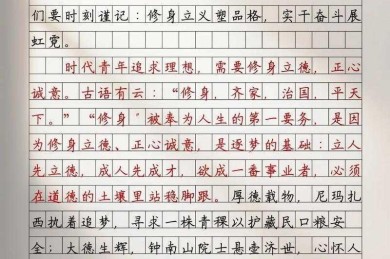 们要时刻谨记：修身立义塑品格，实干奋斗展
虹霓。
时代青年追求理想，需要修身立德，正心
诚意。古语有云：“修身，齐家，治国，平天
下。”“修身”被奉为人生的第一要务，是因
为修身立德、正心诚意，是逐梦的基础：立人
先立德，成人先成才，欲成一番事业者，必须
在道德的土壤里站稳脚跟。厚德载物，尼玛扎
西执着追梦，寻求一株青稞以护藏民口粮安
全；大德生辉，钟南山院士悬壶济世，心怀人